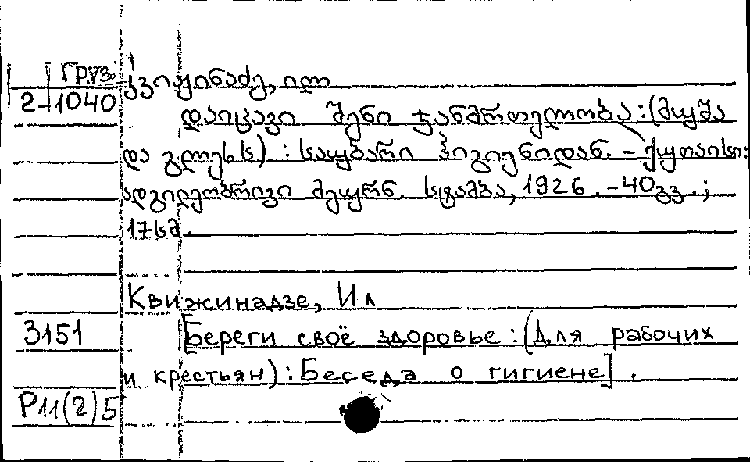 Груз.
2-1040
კვიჟინაძე, ილ
დაიცავი შენი ჯანმრთელობა : (მუშა
და გლეხს) : საუბარი ჰიგიენიდან. – ქუთაისი:
ადგილობრივი მეურნ. სტამბა, 1926. – 40გვ.;
17სმ.
Квижинадзе, Ил
3151 [Береги своё здоровье : (Для рабочих
и крестьян) : Беседа о гигиене].
P11(2)5